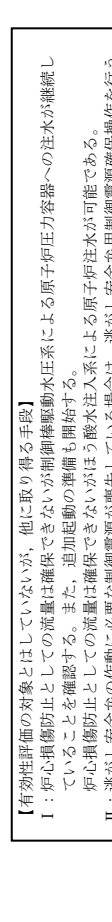 【有効性評価の対象とはしていないが，他に取り得る手段】
Ⅰ：炉心損傷防止としての流量は確保できないが制御棒駆動水圧系による原子炉圧力容器への注水が継続し
ていることを確認する。また，追加起動の準備も開始する。
炉心損傷防止としての流量は確保できないがほう酸水注入系による原子炉注水が可能である。
Ⅱ：逃がし安全弁の作動に必要な制御電源が喪失している場合は，逃がし安全弁用制御電源確保操作を行う